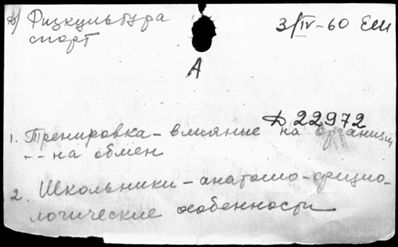 Физкультура 3/IV-60 ЕШ
спорт
А
Д 22972
1. Тренировка - влияние на организм
-- на обмен
2. Школьники - анатомо-физио-
логические особенности